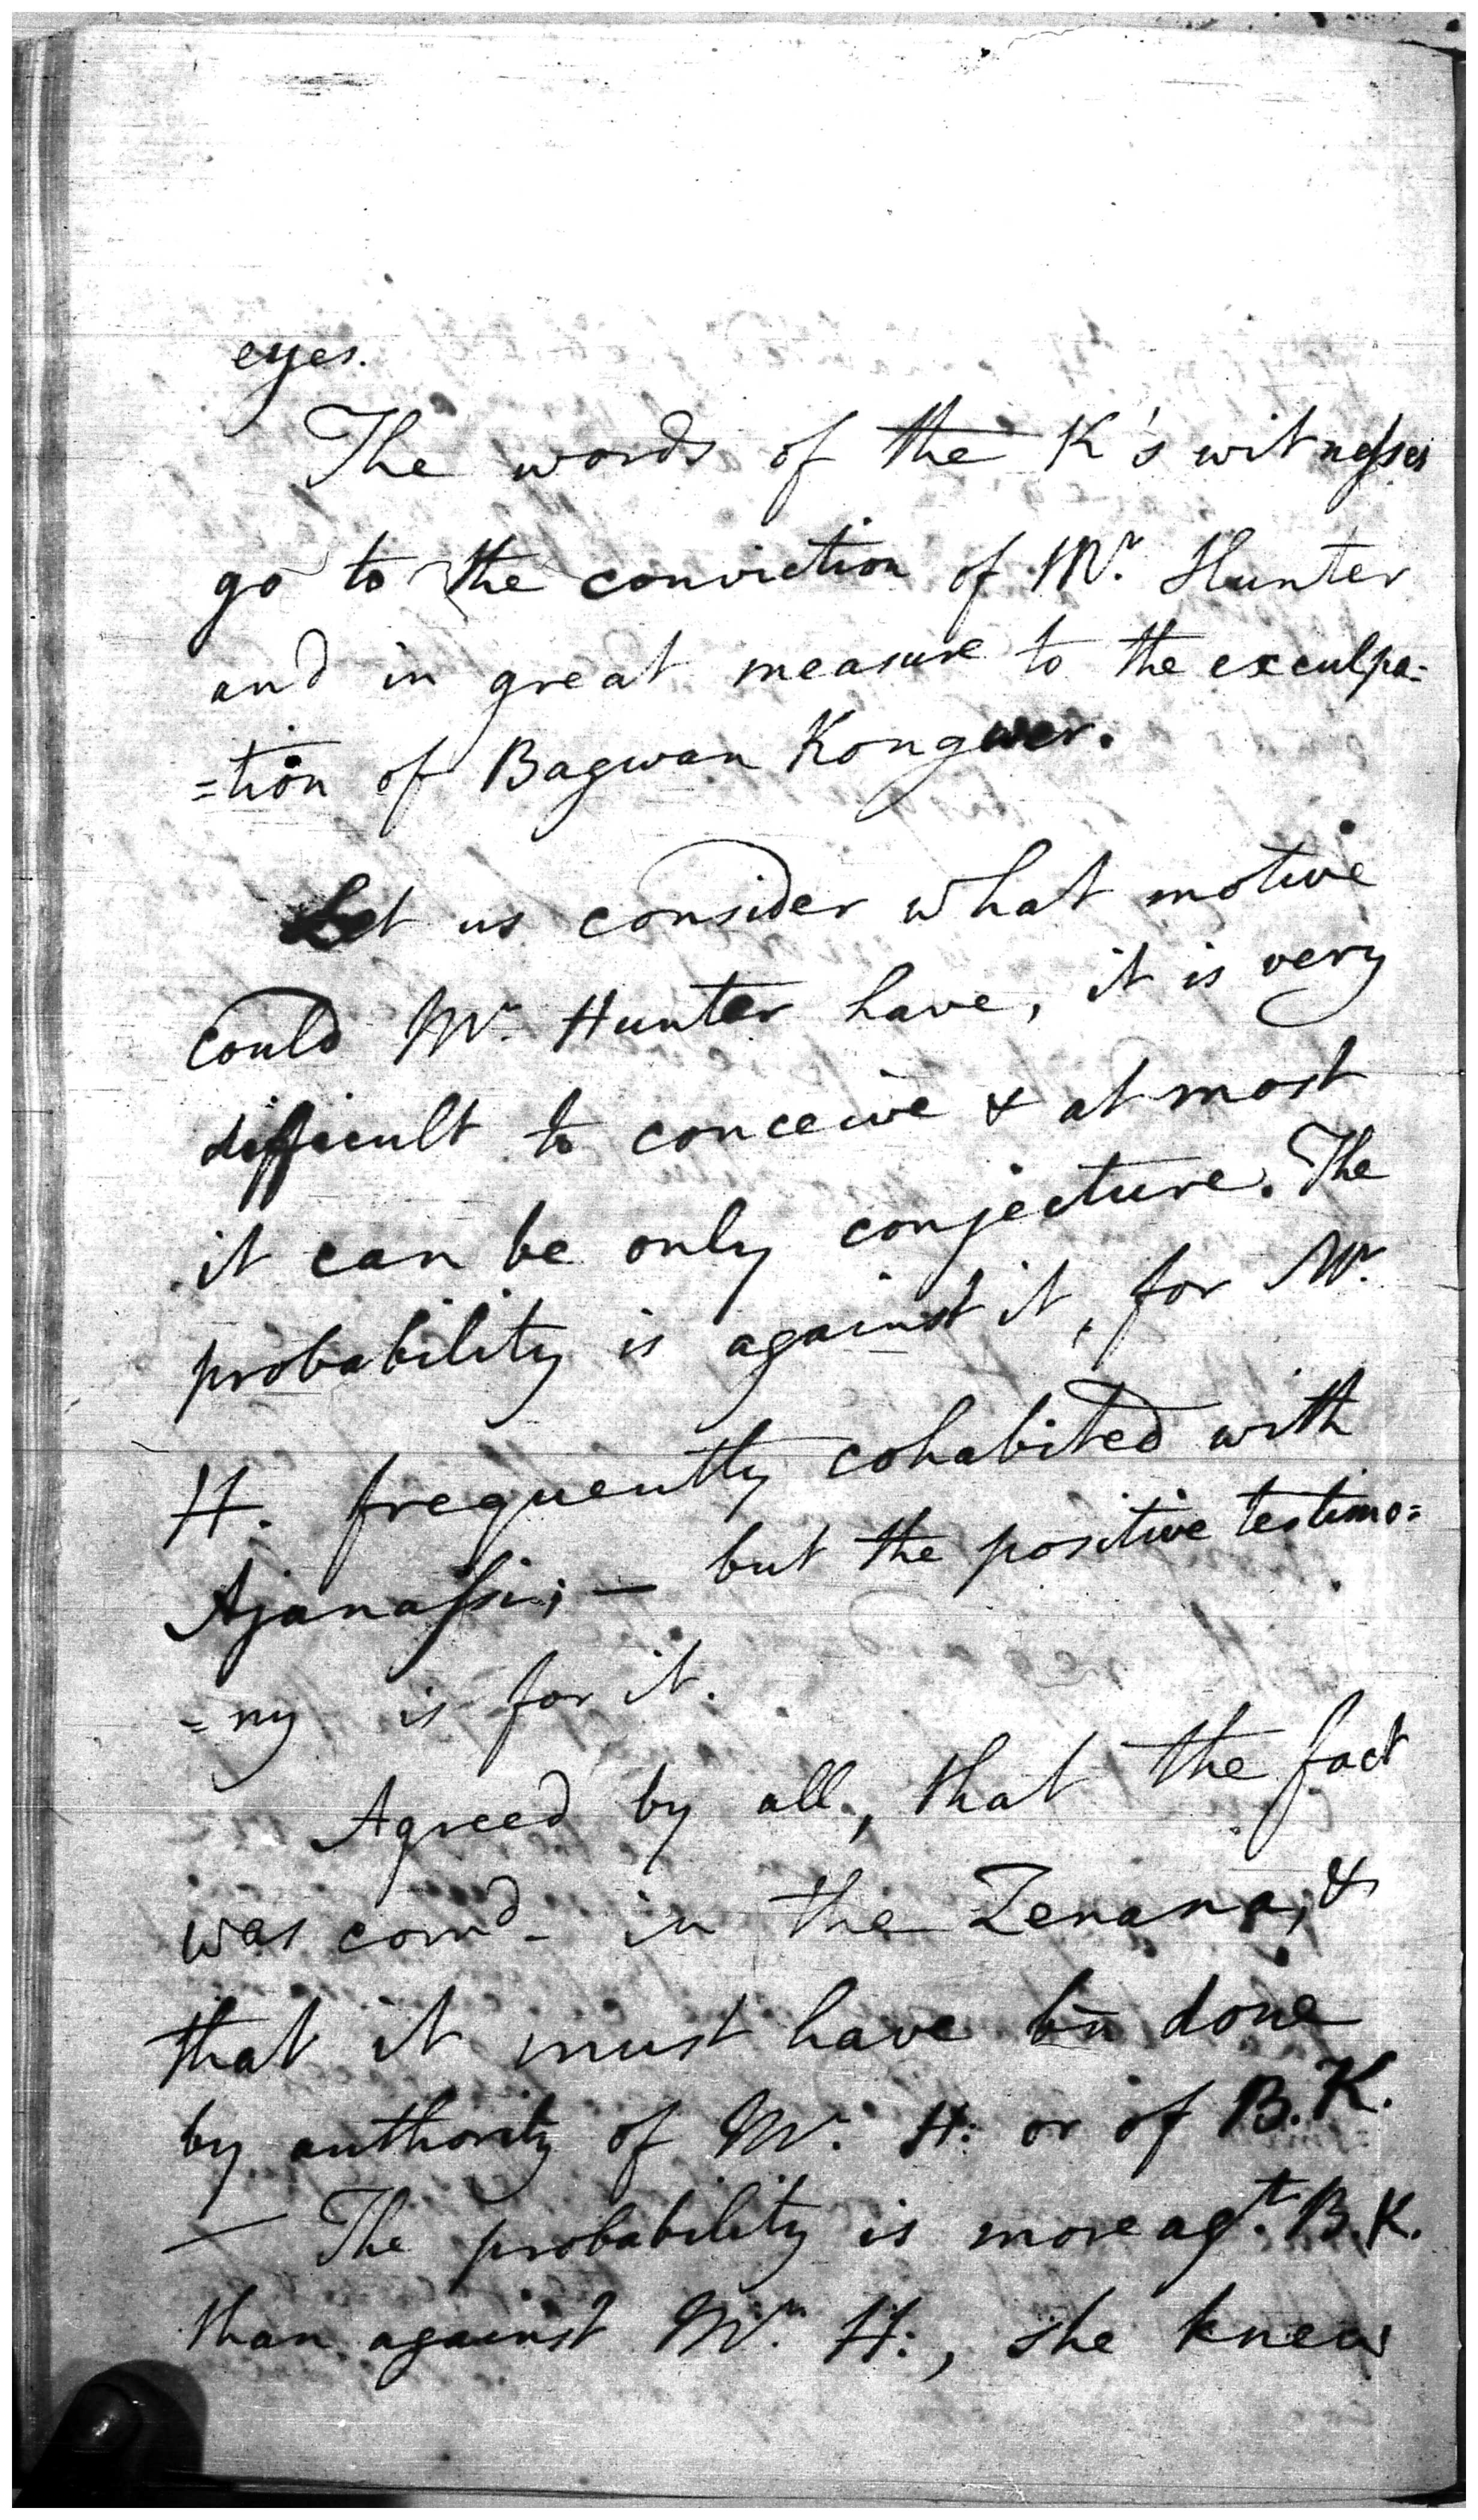 eyes.
The words of the K's witnesses
go to the conviction of Mr. Hunter
and in great measure to the exculpa=
=tion of Bagwan Kongwer.
Let us consider what motive
could Mr. Hunter have, it is very
difficult to conceive & at most
it can be only conjecture. The
probability is against it, for Mr.
H. frequently cohabited with
Ajanassi; — but the positive testimo=
=ny is for it.
Agreed by all, that the fact
was comd. in the Zenana, &
that it must have bn done
by authority of Mr. H: or of B.K.
— The probability is more agt. B.K.
than against Mr. H:, she knew